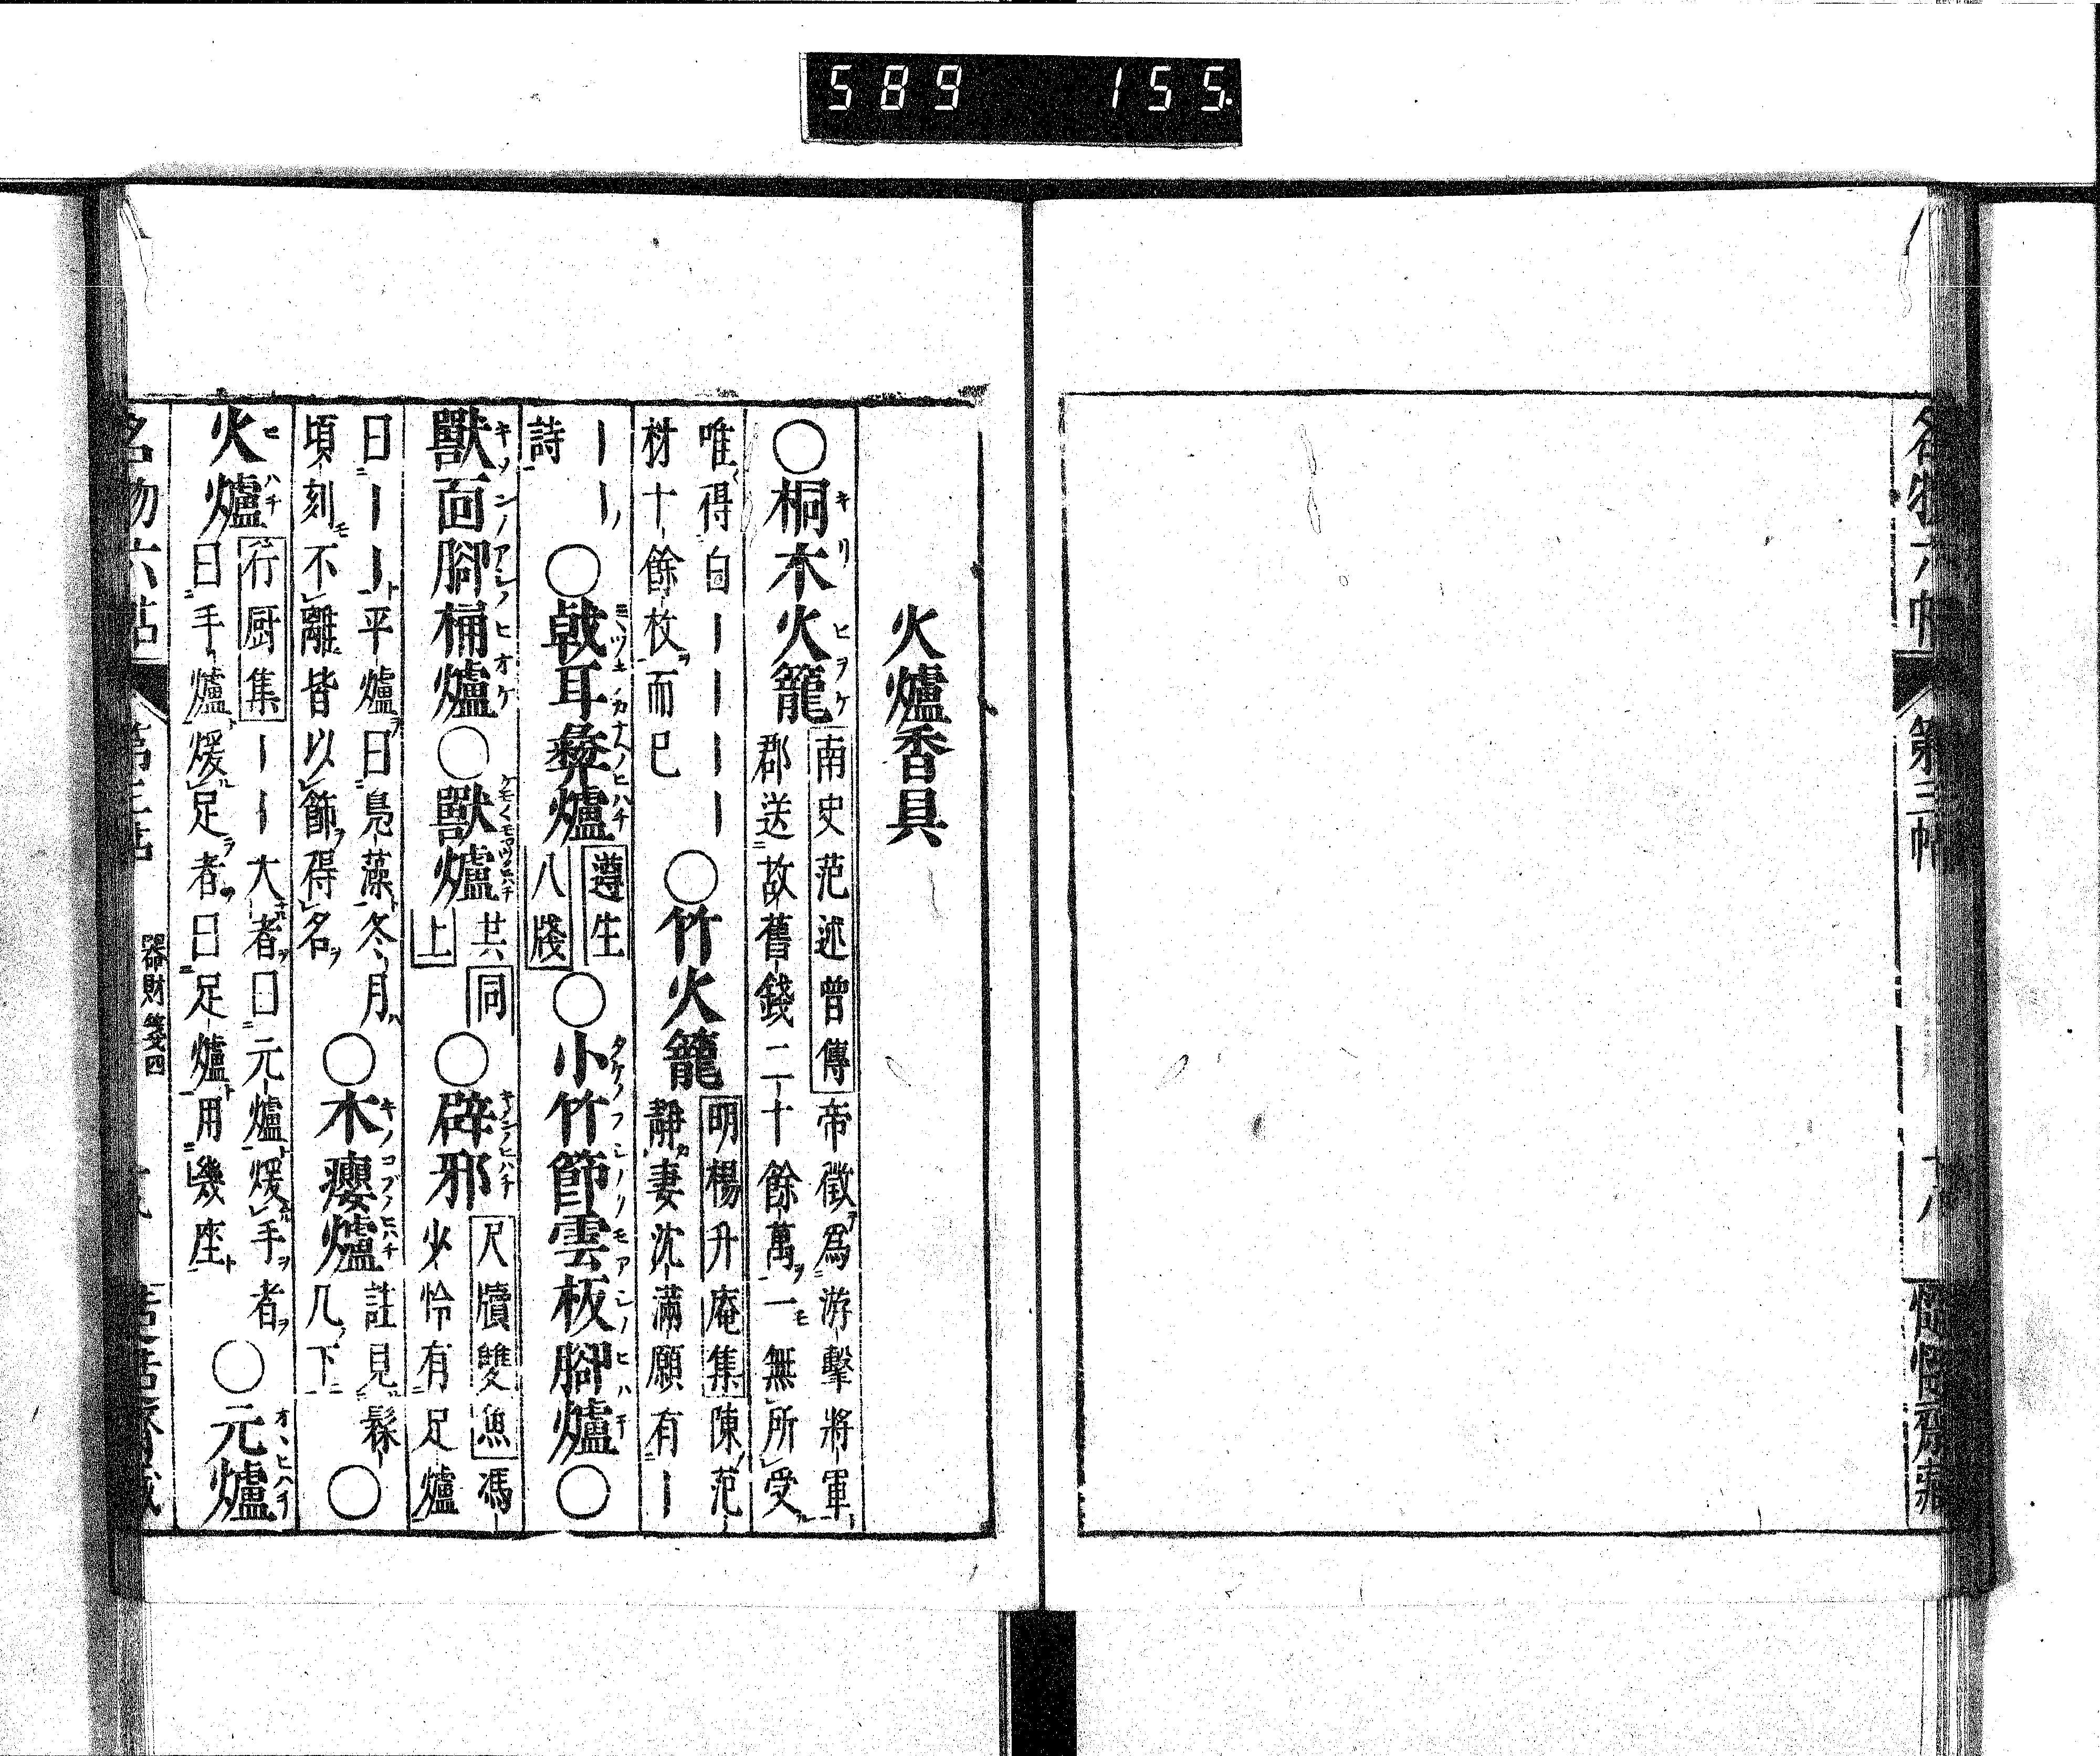 589 155
名物六帖 第三帖
火爐香具
○桐木火籠 キリヒヲケ 南史范述曾傳 帝徵爲游擊將軍
郡送故舊錢二十餘萬一無所受
唯得白｜｜｜｜ ○竹火籠 明楊升庵集 陳范
材十餘枚而已 靜妻沈滿願有｜
｜｜ ○戟耳彝爐 遵生
詩 八牋 ○小竹節雲板腳爐○
獸面腳桶爐 ○獸爐 共同
上 ○辟邪 尺牘雙魚 馮
少怜有足爐
曰｜｜平爐曰鳧藻冬月
頃刻不離皆以飾得名 ○木癭爐 註見髹
几下 ○
火爐 ヒハチ 行厨集 ｜｜大者曰元爐煖手者
曰手爐煖足者曰足爐用幾座 ○元爐
名物六帖 器財箋四